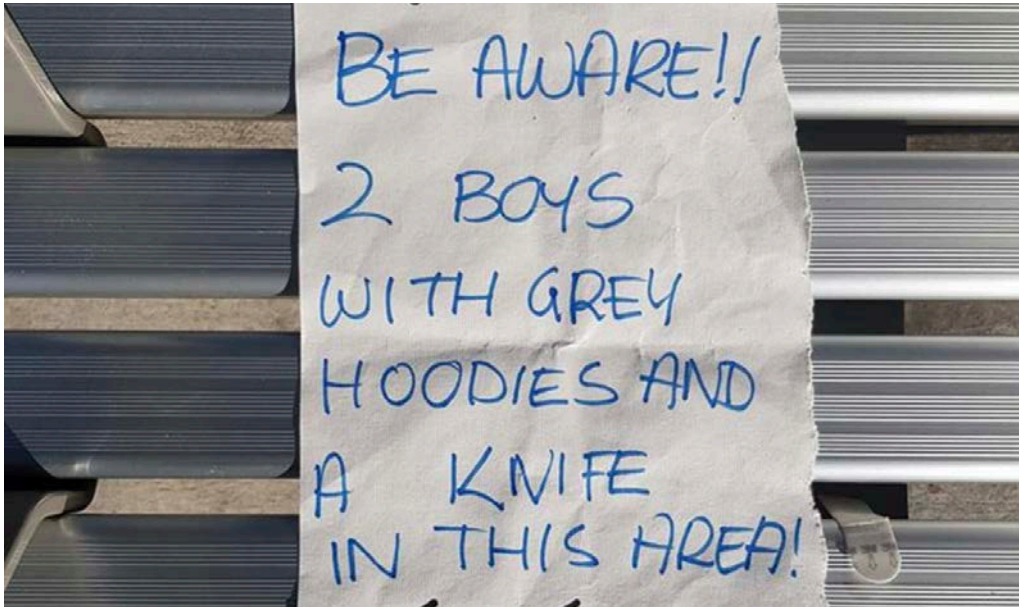 BE AWARE!!
2 BOYS
WITH GREY
HOODIES AND
A KNIFE
IN THIS AREA!